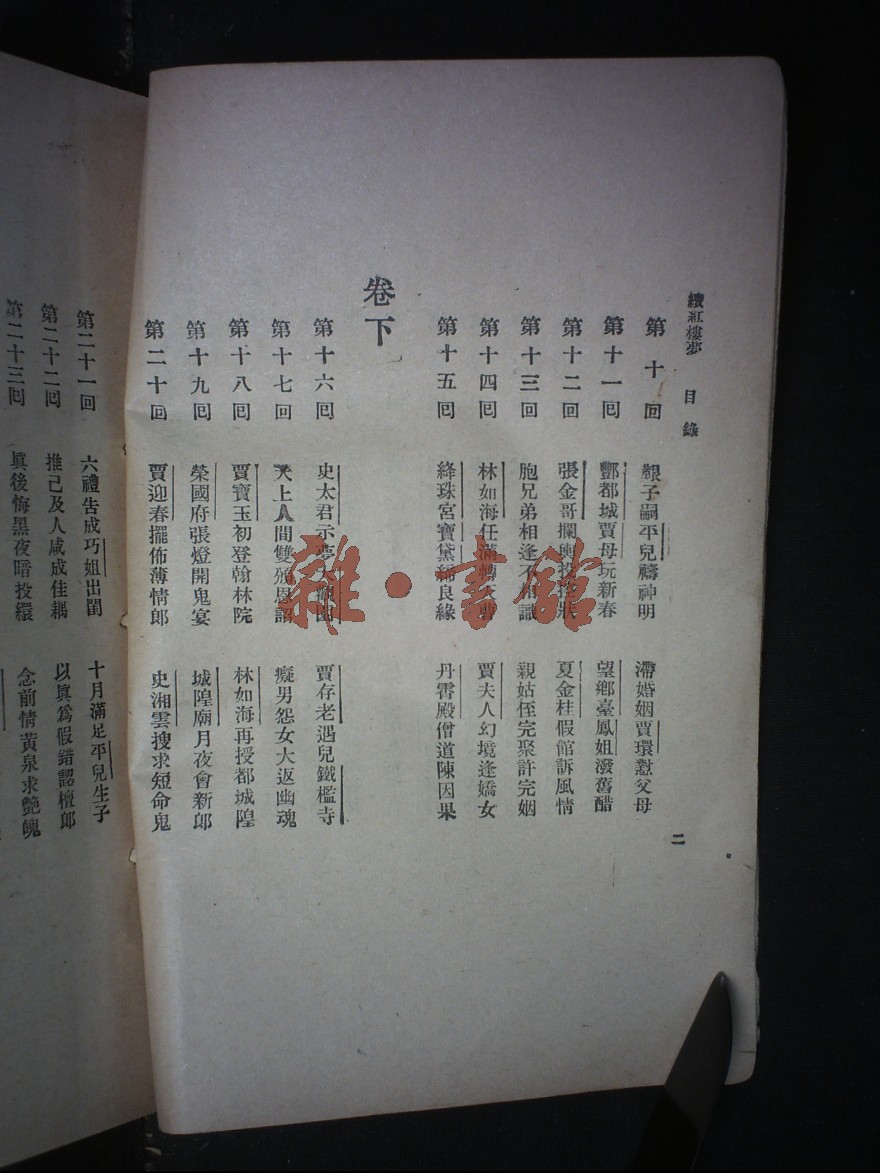 續紅樓夢 目錄
二
第十回 艱子嗣平兒禱神明 滯婚姻賈環懟父母
第十一回 酆都城賈母玩新春 望鄉臺鳳姐潑舊醋
第十二回 張金哥攔輿投控狀 夏金桂假館訴風情
第十三回 胞兄弟相逢不相識 親姑侄完聚許完姻
第十四回 林如海任滿轉 賈夫人幻境逢嬌女
第十五回 絳珠宮寶黛締良緣 丹霄殿僧道陳因果
卷下
第十六回 史太君示夢 賈存老遇兒鐵檻寺
第十七回 天上人間雙頒恩詔 癡男怨女大返幽魂
第十八回 賈寶玉初登翰林院 林如海再授都城隍
第十九回 榮國府張燈開鬼宴 城隍廟月夜會新郎
第二十回 賈迎春擺佈薄情郎 史湘雲搜求短命鬼
第二十一回 六禮告成巧姐出閨 十月滿足平兒生子
第二十二回 推己及人咸成佳耦 以眞爲假錯認檀郎
第二十三回 眞後悔黑夜暗投繯 念前情黃泉求艷魄
雜·書館